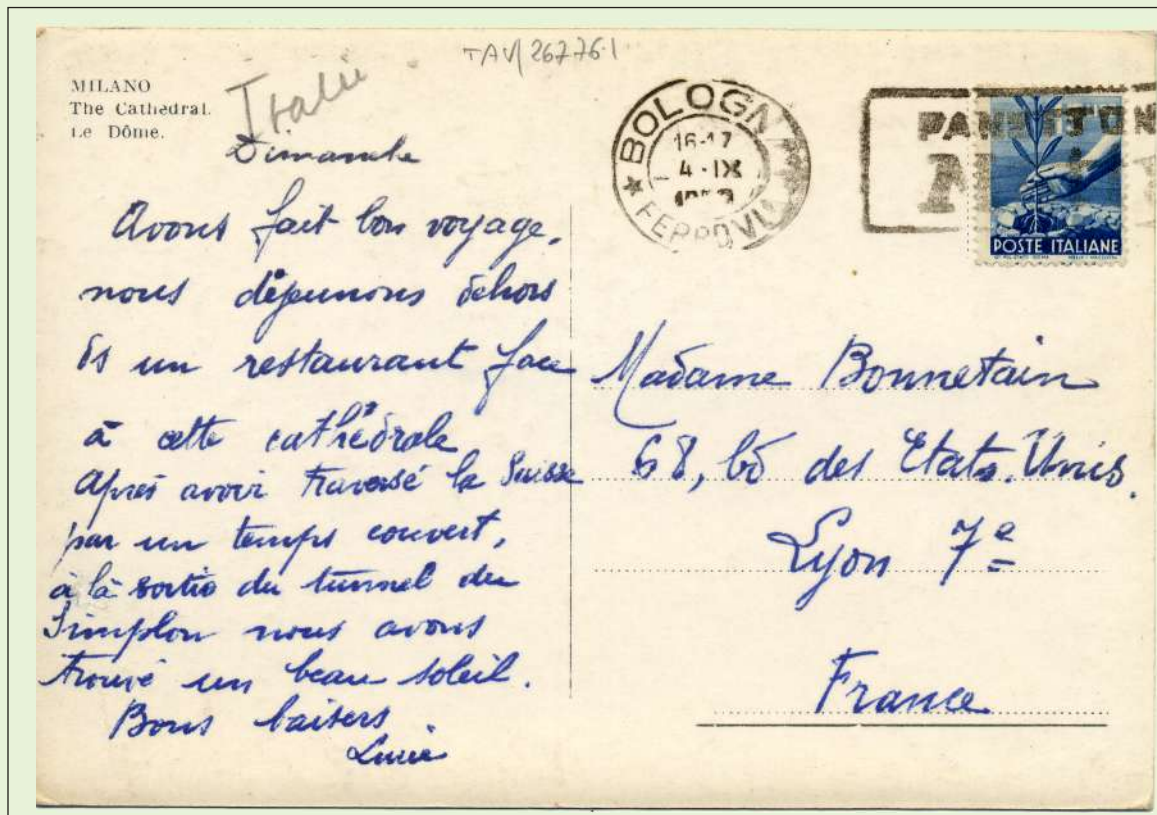 TAV/26776.1
MILANO
The Cathedral.
Le Dôme.
Italie
Dimanche
Avons fait bon voyage,
nous déjeunons dehors
ds un restaurant face
à cette cathédrale
Après avoir traversé la Suisse
par un temps couvert,
à la sortie du tunnel du
Simplon nous avons
trouvé un beau soleil.
Bons baisers.
BOLOGNA
16-17
4 · IX
FERROVIA
POSTE ITALIANE
Madame Bonnetain
68, bd des Etats.Unis.
Lyon 7e
France